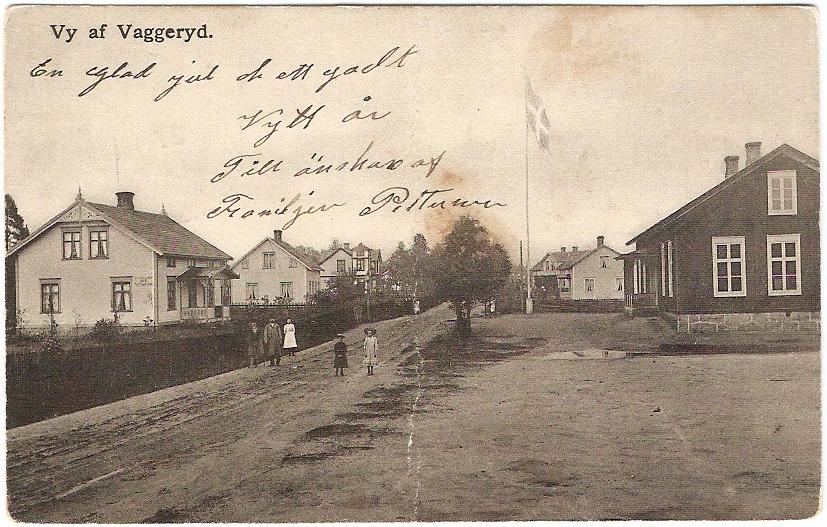 Vy af Vaggeryd.
En glad jul ok ett godt
Nytt år
Till önskar af
Familjen